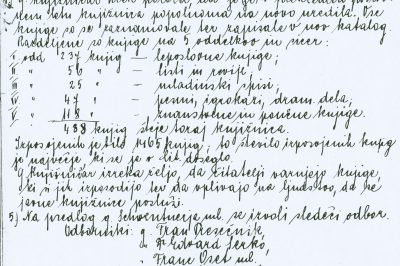 nem letu knjižnica popolnoma na novo uredila. Vse
knjige so se zaznamovale ter zapisale v nov katalog.
Razdeljene so knjige na 5 oddelkov in sicer:
I. odd 237 knjig — leposlovne knjige;
II. " 56 " — listi in revije;
III. " 25 " — mladinski spisi;
IV. " 47 " — pesmi, igrokazi, dram. dela;
V. " 118 " — znanstvene in poučne knjige.
488 knjig šteje toraj knjižnica.
Izposojenih je bilo 1465 knjig, to število izposojenih knjig
je največje, ki se je o. lit. doseglo.
G. knjižničar izreka željo, da čitatelji varujejo knjige,
ki si jih izposodijo ter da vplivajo na ljudstvo, da se
javne knjižnice posluži.
5) Na predlog g. ml. se izvoli sledeči odbor.
Odborniki: g. Fran
" Dr. Edvard Serko,
" Franc Oset ml.